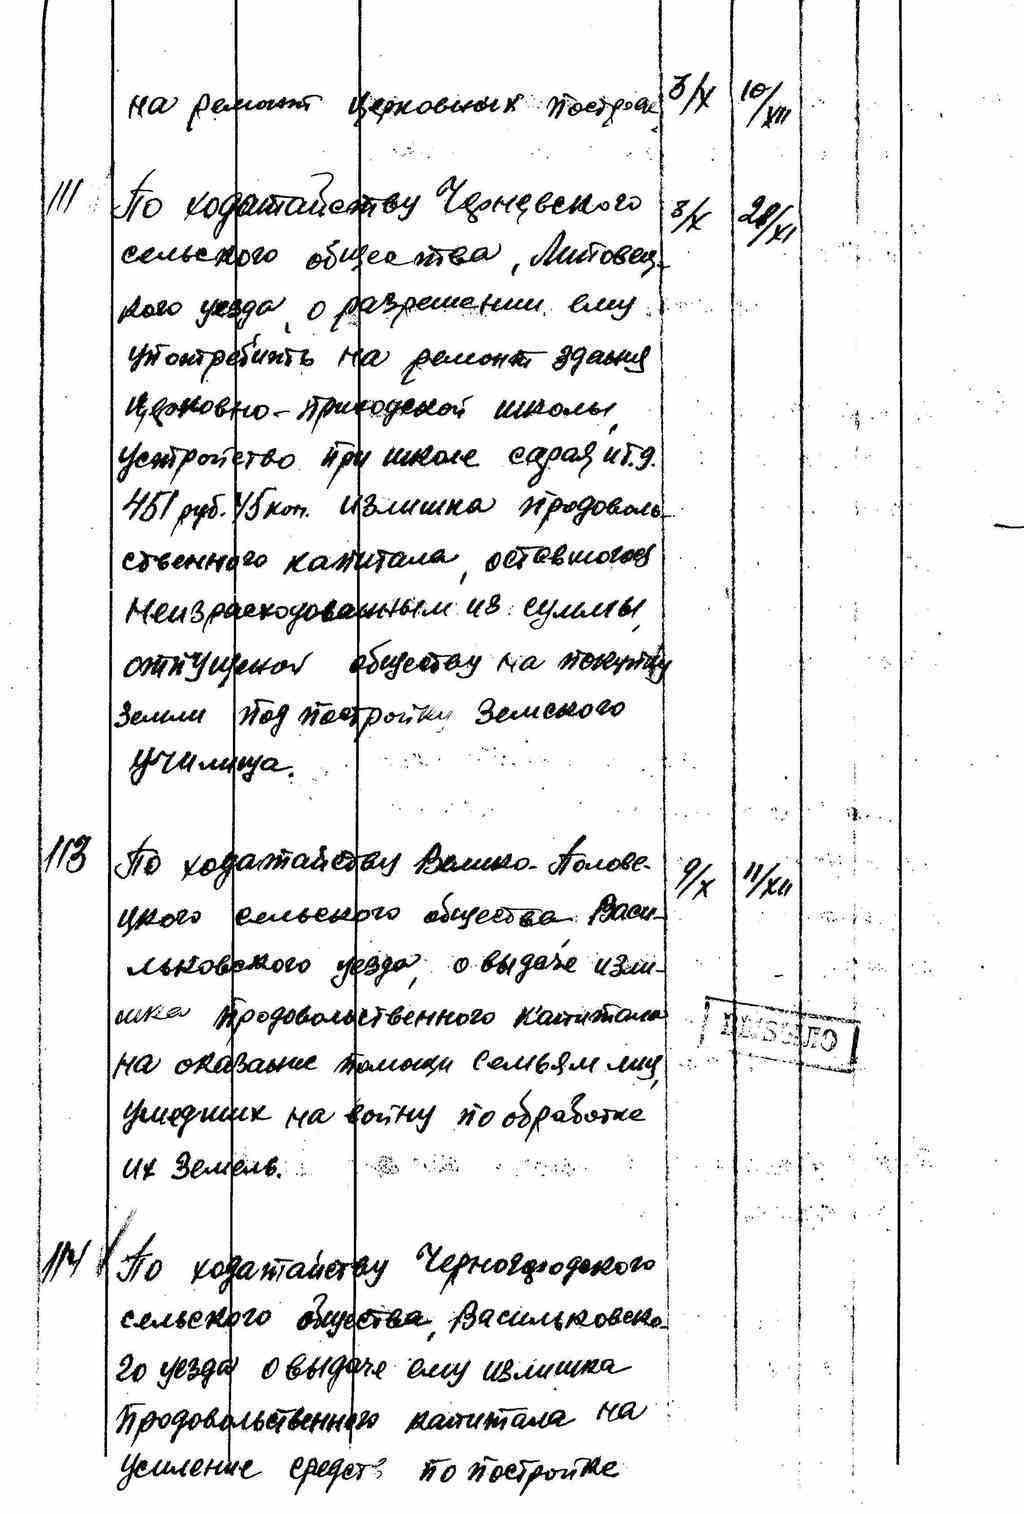 на ремонт церковных построек 3/X 10/XII
111 По ходатайству Черневского 3/X 28/XI
сельского общества, Липовец-
кого уезда, о разрешении ему
употребить на ремонт здания
церковно-приходской школы,
устройство при школе сарая и т.д.
451 руб. 45 коп. излишка продоволь-
ственного капитала, оставшогося
неизрасходованным из суммы,
отпущеной обществу на покупку
земли под постройку земского
училища.
113 По ходатайству Велико-Полове- 9/X 11/XII
цкого сельского общества Васи-
льковского уезда, о выдаче изли-
шка продовольственного капитала
на оказание помощи семьям лиц,
ушедших на войну по обработке
их земель.
ВЫБЫЛО
114 По ходатайству Черногородского
сельского общества, Васильковско-
го уезда о выдаче ему излишка
продовольственного капитала на
усиление средств по постройке